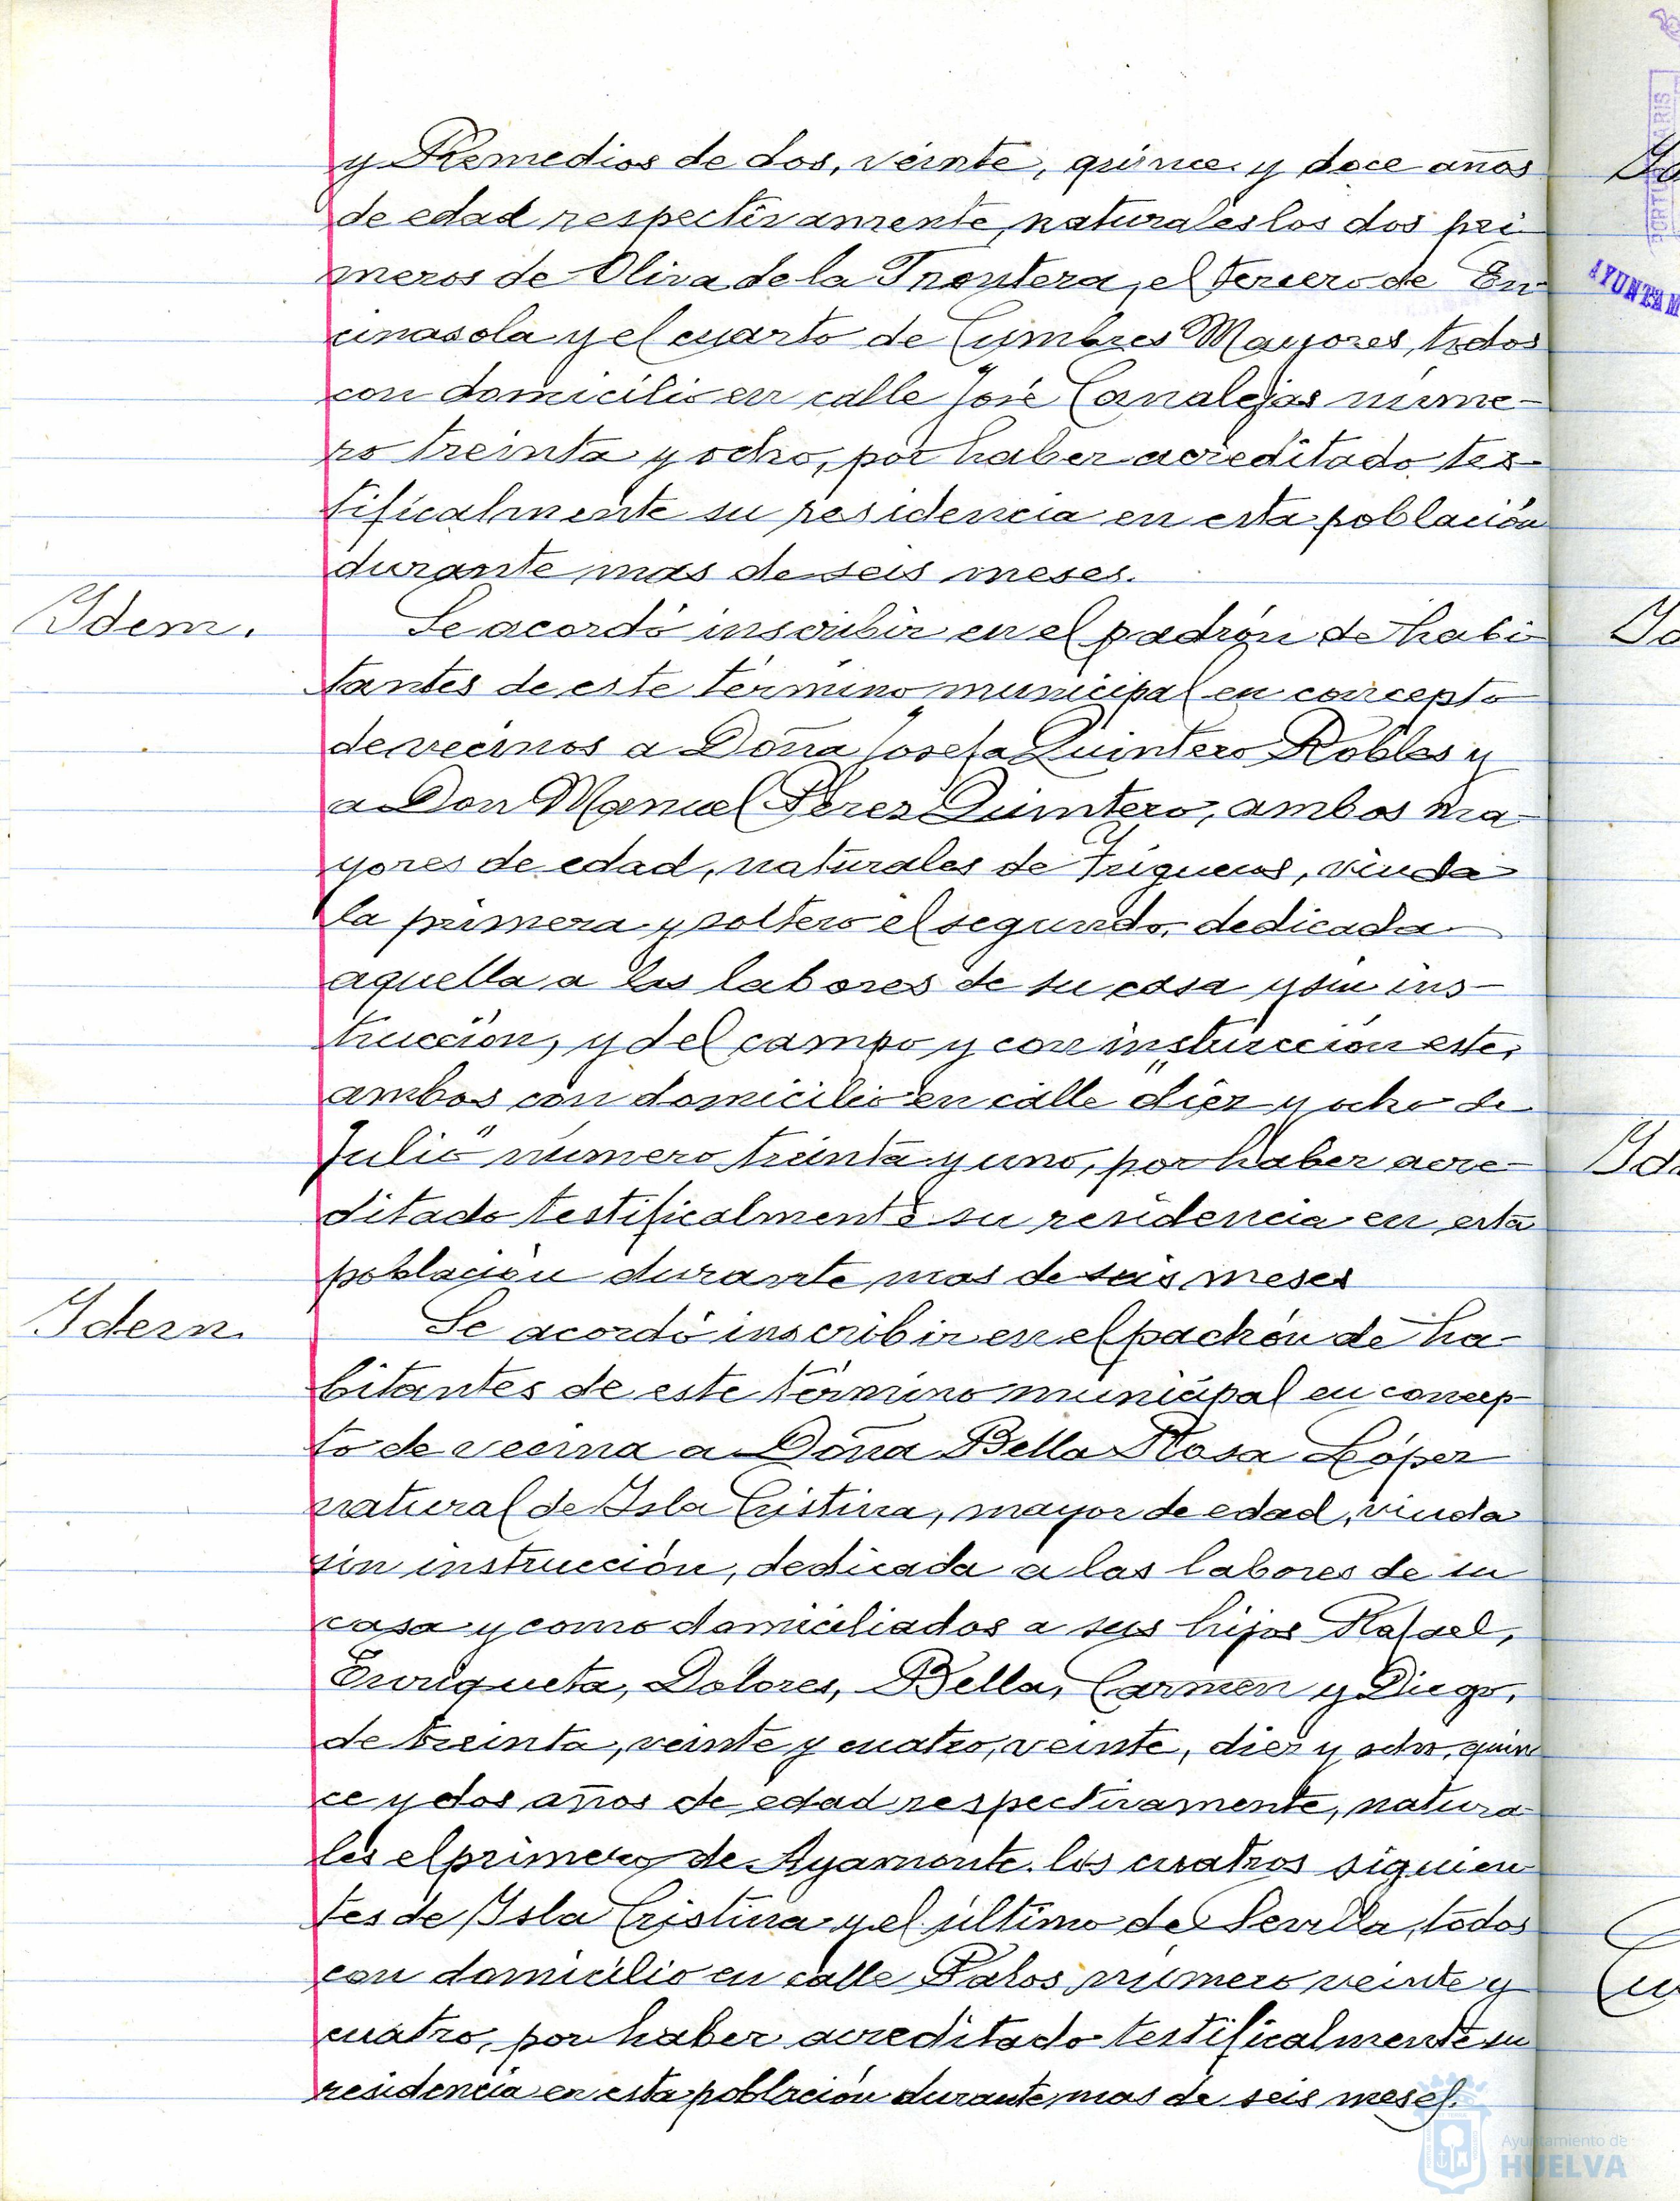 y Remedios de dos, veinte, quince y doce años
de edad respectivamente, naturales los dos pri
meros de Oliva de la Frontera, el tercero de En
cinasola y el cuarto de Cumbres Mayores, todos
con domicilio en calle José Canalejas núme-
ro treinta y ocho, por haber acreditado tes-
tificalmente su residencia en esta población
durante mas de seis meses.
Idem.
Se acordó inscribir en el padrón de habi
tantes de este término municipal en concepto
de vecinos a Doña Josefa Quintero Robles y
a Don Manuel Pérez Quintero, ambos ma-
yores de edad, naturales de Trigueros, viuda
la primera y soltero el segundo, dedicada
aquella a las labores de su casa y sin ins-
trucción, y del campo y con instrucción este,
ambos con domicilio en calle "diez y ocho de
Julio" número treinta y uno, por haber acre-
ditado testificalmente su residencia en esta
población durante mas de seis meses
Idem.
Se acordó inscribir en el padrón de ha-
bitantes de este término municipal en concep-
to de vecina a Doña Bella Rosa López
natural de Isla Cristina, mayor de edad, viuda
sin instrucción, dedicada a las labores de su
casa y como domiciliados a sus hijos Rafael,
Enriqueta, Dolores, Bella, Carmen y Diego,
de treinta, veinte y cuatro, veinte, diez y ocho, quin
ce y dos años de edad respectivamente, natura-
les el primero de Ayamonte, los cuatros siguien
tes de Isla Cristina y el último de Sevilla, todos
con domicilio en calle Palos número veinte y
cuatro, por haber acreditado testificalmente su
residencia en esta población durante mas de seis meses.
AYUNTAM
Ayuntamiento de
HUELVA